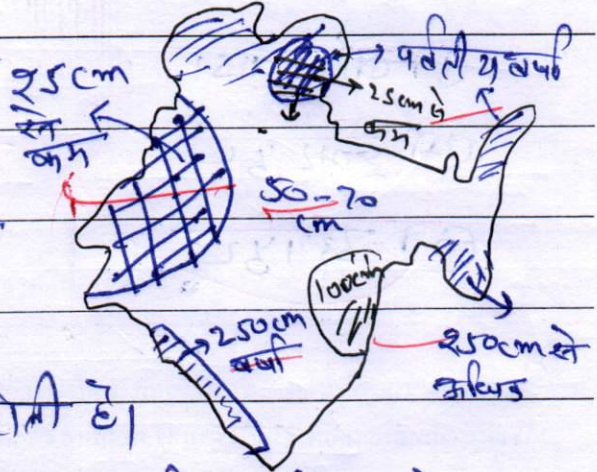 25 cm
से
कम
पर्वतीय वर्षा
25 cm से
कम
50-70
cm
100cm
250cm
वर्षा
250cm से
अधिक
है।